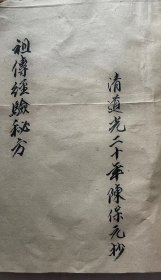 清道光二十年陳保元抄
祖傳經驗秘方